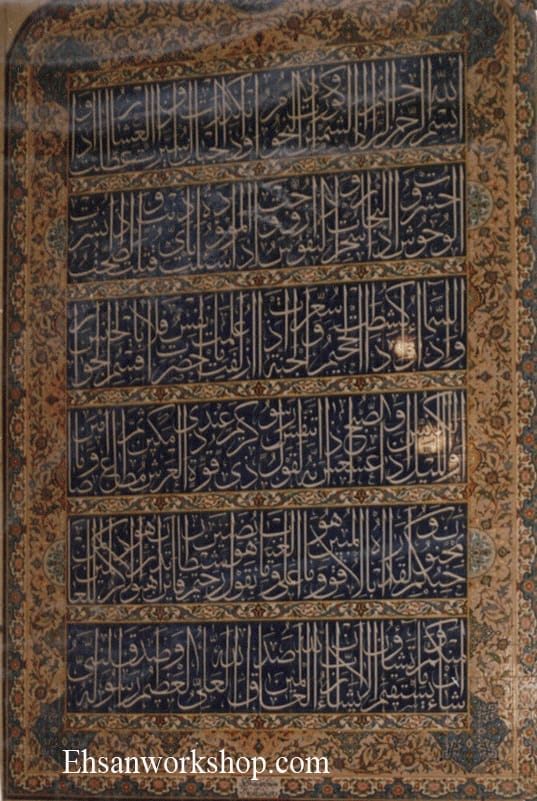 بسم الله الرحمن الرحيم إذا الشمس كورت وإذا النجوم انكدرت وإذا الجبال سيرت وإذا العشار عطلت وإذا
الوحوش حشرت وإذا البحار سجرت وإذا النفوس زوجت وإذا الموءودة سئلت بأي ذنب قتلت وإذا الصحف نشرت
وإذا السماء كشطت وإذا الجحيم سعرت وإذا الجنة أزلفت علمت نفس ما أحضرت فلا أقسم بالخنس الجوار
الكنس والليل إذا عسعس والصبح إذا تنفس إنه لقول رسول كريم ذي قوة عند ذي العرش مكين مطاع ثم أمين وما
صاحبكم بمجنون ولقد رآه بالأفق المبين وما هو على الغيب بضنين وما هو بقول شيطان رجيم فأين تذهبون إن هو إلا ذكر للعالمين
لمن شاء منكم أن يستقيم وما تشاءون إلا أن يشاء الله رب العالمين صدق الله العلي العظيم وصدق رسوله النبي
Ehsanworkshop.com